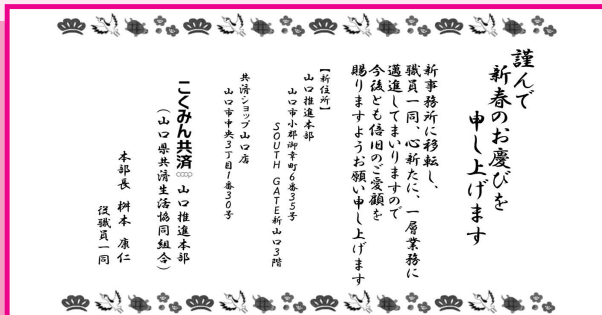 謹んで
新春のお慶びを
申し上げます
新事務所に移転し、
職員一同、心新たに、一層業務に
邁進してまいりますので
今後とも倍旧のご愛顧を
賜りますようお願い申し上げます
【新住所】
山口推進本部
山口市小郡御幸町6番35号
SOUTH GATE新山口3階
共済ショップ山口店
山口市中央3丁目1番30号
こくみん共済 coop 山口推進本部
(山口県共済生活協同組合)
本部長 桝本 康仁
役職員一同